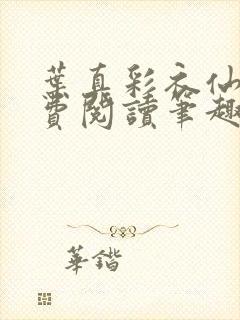 葉真彩衣仙
費閱讀筆趣
華鍇